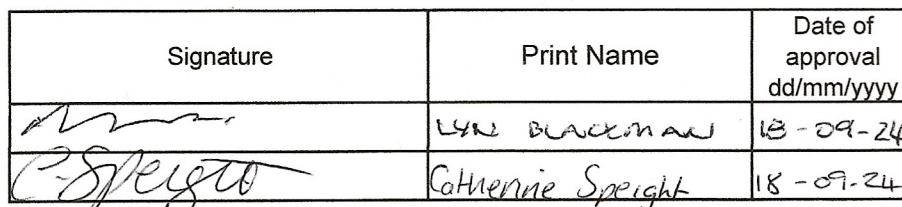 Signature Print Name Date of
approval
dd/mm/yyyy
LYN BLACKMAN 18-09-24
C. Speight Catherine Speight 18-09-24